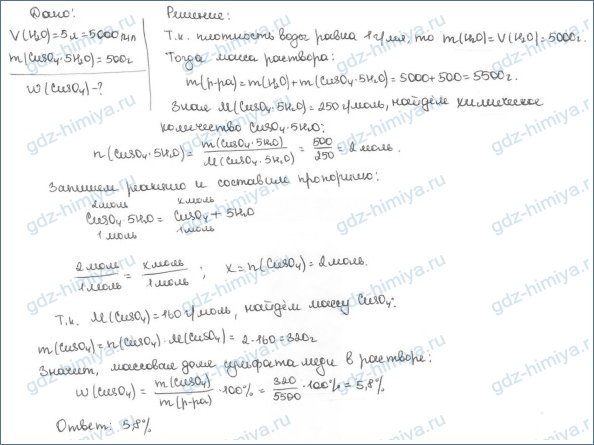 Дано:
V(H₂O)=5л=5000мл
m(CuSO₄·5H₂O)=500г
W(CuSO₄)-?
Решение:
Т.к. плотность воды равна 1г/мл, то m(H₂O)=V(H₂O)=5000г.
Тогда масса раствора:
m(р-ра)=m(H₂O)+m(CuSO₄·5H₂O)=5000+500=5500г.
Зная M(CuSO₄·5H₂O)=250г/моль, найдём химическое
количество CuSO₄·5H₂O:
n(CuSO₄·5H₂O)= m(CuSO₄·5H₂O)/M(CuSO₄·5H₂O) = 500/250 =2 моль.
Запишем реакцию и составим пропорцию:
2моль x моль
CuSO₄·5H₂O = CuSO₄ + 5H₂O
1моль 1моль
2моль/1моль = x моль/1моль ; x=n(CuSO₄)=2моль.
Т.к. M(CuSO₄)=160г/моль, найдём массу CuSO₄:
m(CuSO₄)=n(CuSO₄)·M(CuSO₄)=2·160=320г
Значит, массовая доля сульфата меди в растворе:
W(CuSO₄)= m(CuSO₄)/m(р-ра) ·100%= 320/5500 ·100%=5,8%
Ответ: 5,8%
gdz-himiya.ru
gdz-himiya.ru
gdz-himiya.ru
gdz-himiya.ru
gdz-himiya.ru
gdz-himiya.ru
gdz-himiya.ru
gdz-himiya.ru
gdz-himiya.ru
gdz-himiya.ru
gdz-himiya.ru
gdz-himiya.ru